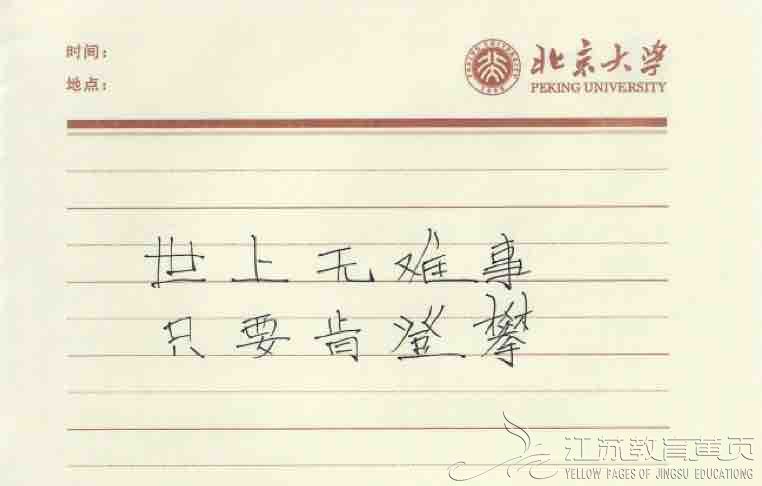 时间：
地点：
PEKING UNIVERSITY
1898
北京大学
PEKING UNIVERSITY
世上无难事
只要肯登攀
江苏教育黄页
YELLOW PAGES OF JINGSU EDUCATIONG